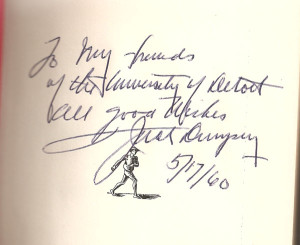 To My friends
of the University of Detroit
all good Wishes
Jack Dempsey
5/17/60